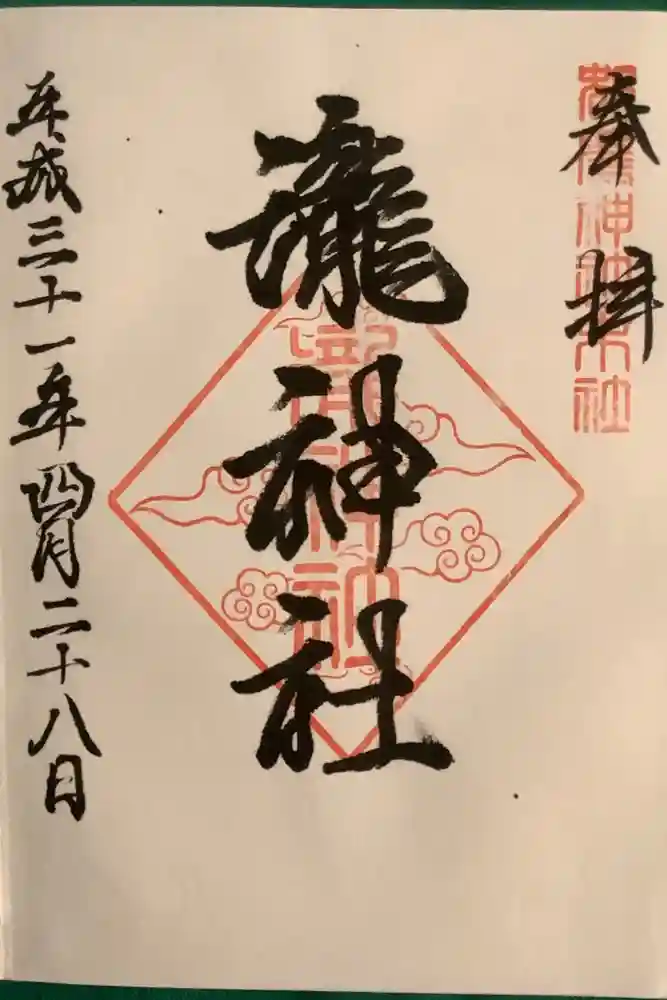 奉拝
都農神社末社
瀧神社
平成三十一年四月二十八日